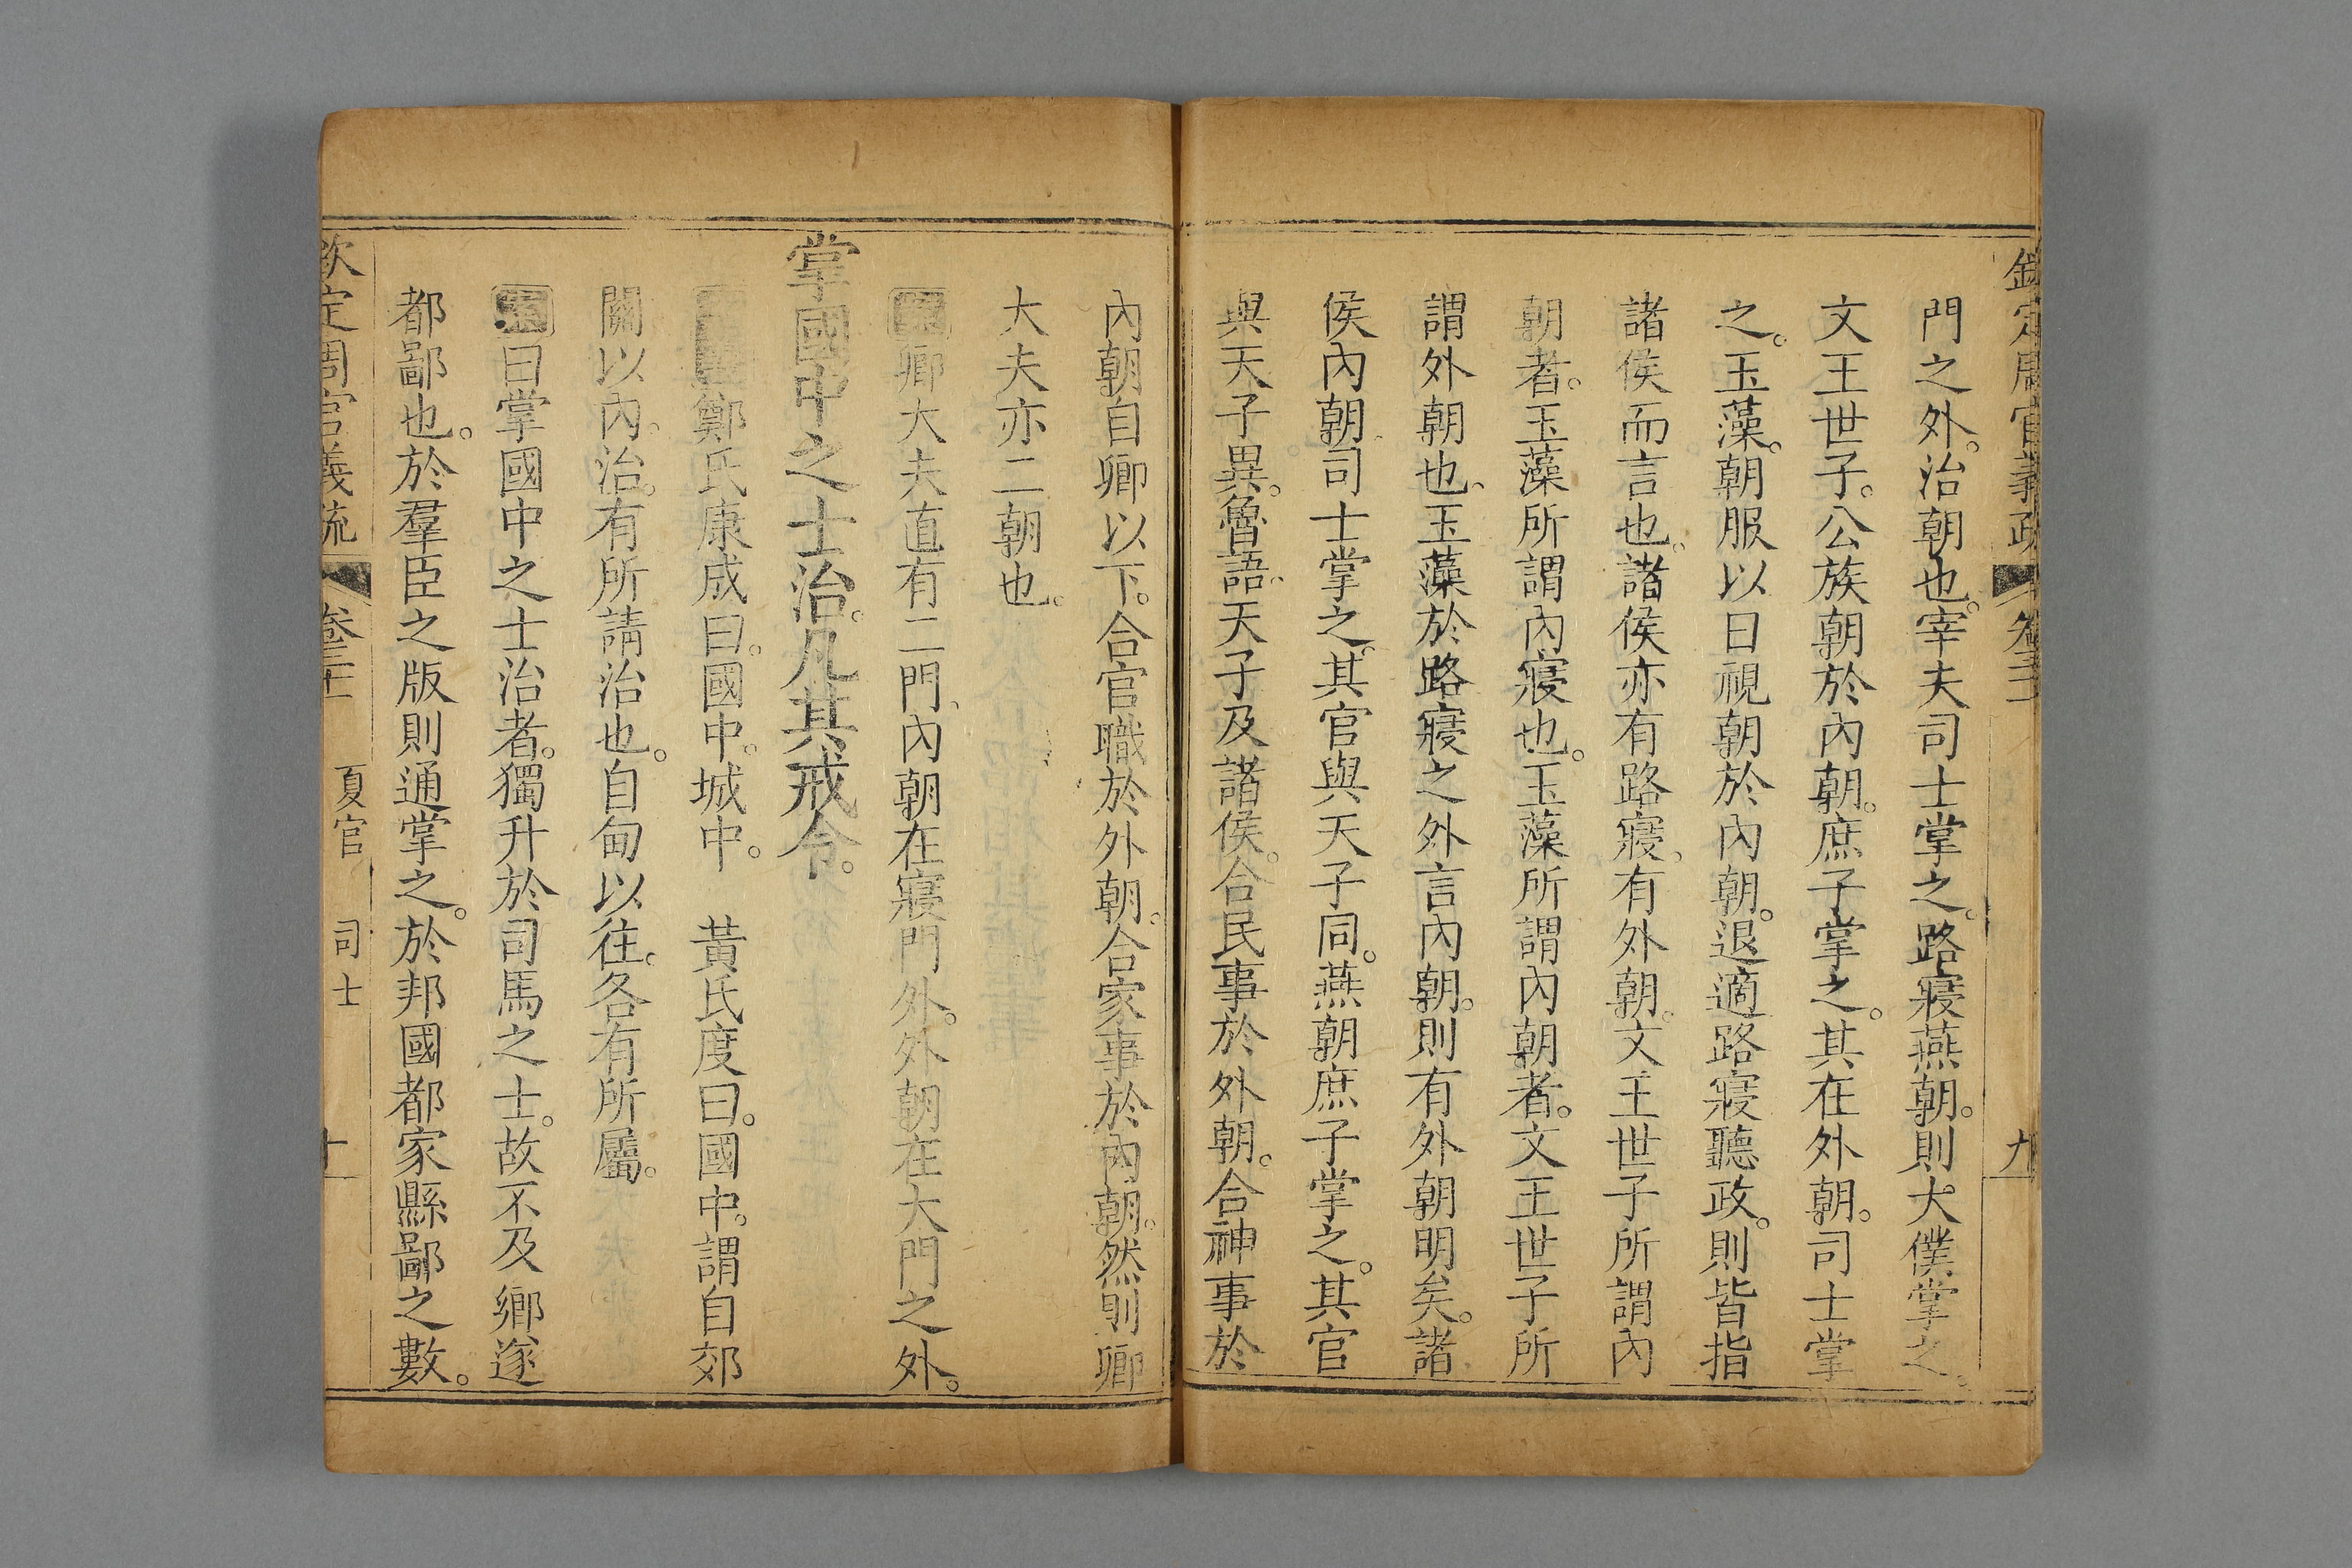 欽定周官義疏 卷三十一 九
門之外。治朝也。宰夫司士掌之。路寢燕朝。則大僕掌之。
文王世子。公族朝於內朝。庶子掌之。其在外朝。司士掌
之。玉藻。朝服以日視朝於內朝。退適路寢聽政。則皆指
諸侯而言也。諸侯亦有路寢。有外朝。文王世子所謂內
朝者。玉藻所謂內寢也。玉藻所謂內朝者。文王世子所
謂外朝也。玉藻於路寢之外言內朝。則有外朝明矣。諸
侯內朝。司士掌之。其官與天子同。燕朝庶子掌之。其官
與天子異。魯語。天子及諸侯。合民事於外朝。合神事於
內朝。自卿以下。合官職於外朝。合家事於內朝。然則卿
大夫亦二朝也。
卿大夫直有二門。內朝在寢門外。外朝在大門之外。
掌國中之士治。凡其戒令。
鄭氏康成曰。國中。城中。 黃氏度曰。國中。謂自郊
關以內。治。有所請治也。自甸以往。各有所屬。
案曰掌國中之士治者。獨升於司馬之士。故不及鄉遂
都鄙也。於羣臣之版則通掌之。於邦國都家縣鄙之數。
欽定周官義疏 卷三十一 夏官 司士 十